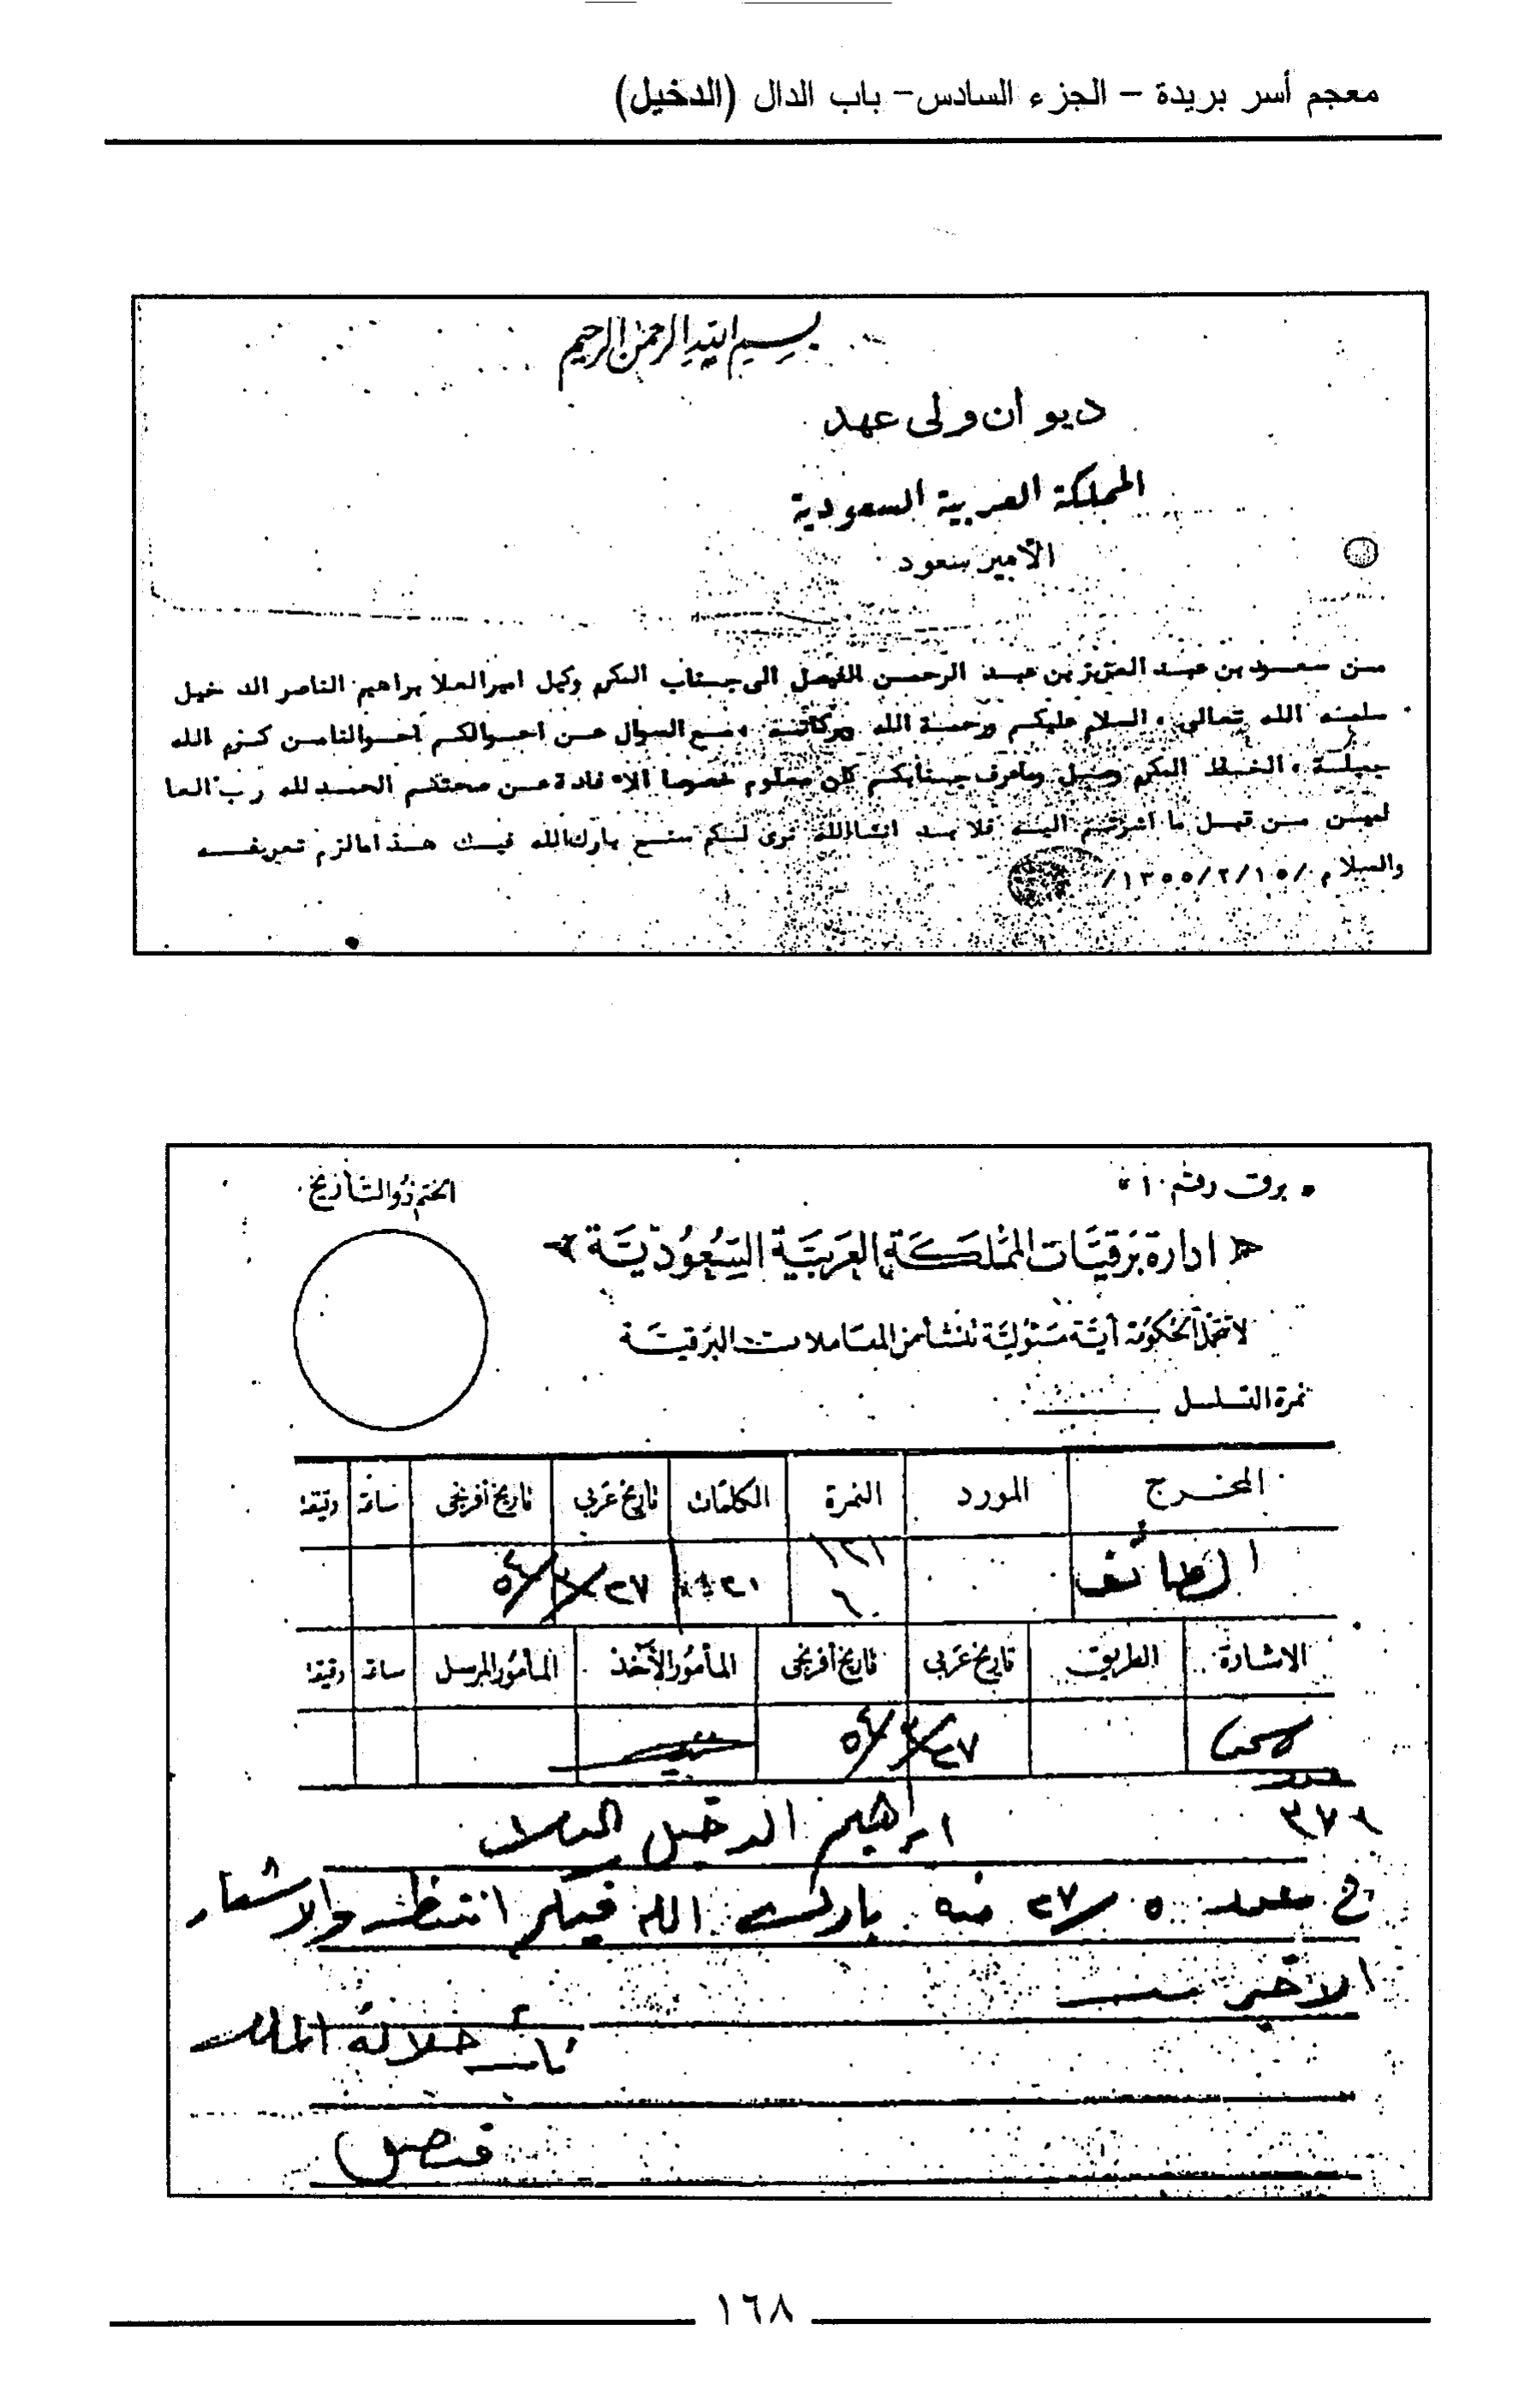 معجم أسر بريدة – الجزء السادس– باب الدال (الدخيل)
بسم الله الرحمن الرحيم
ديوان ولى عهد
المملكة العربية السعودية
الأمير سعود
من سعود بن عبد العزيز بن عبد الرحمن الفيصل الى جناب المكرم وكيل امير العلا براهيم الناصر الدخيل
سلمه الله تعالى، السلام عليكم ورحمة الله وبركاته، مع السوال عن احوالكم احوالنا من كرم الله
جميلة، الخط المكرم وصل وماعرف جنابكم كان معلوم خصوصا الافادة عن صحتكم الحمد لله رب العا
لمين من قبل ما اشرتم اليه فلا بد انشاالله نرى لكم سنع بارك الله فيك هذا مالزم تعريفه
والسلام /١٣٥٥/٢/١٥/
« برق رقم ١ »
الختم ذو التاريخ
ادارة برقيات المملكة العربية السعودية
لا تتحمل الحكومة أية مسئولية تنشأ من المعاملات البرقية
نمرة التسلسل
المخرج المورد النمرة الكلمات تاريخ عربي تاريخ أفرنجى ساعة دقيقة
الطائف ١٢١ ٢٧/٣/٥٤
٦
الاشارة الطريق تاريخ عربي تاريخ أفرنجى المأمور الآخذ المأمور المرسل ساعة دقيقة
٢٧/٣/٥٤
ابراهيم الدخيل العلا
ج ٥ ٢٧ منه بارك الله فيكم انتظر والاشعار
الاخير
نائب جلالة الملك
فيصل
١٦٨